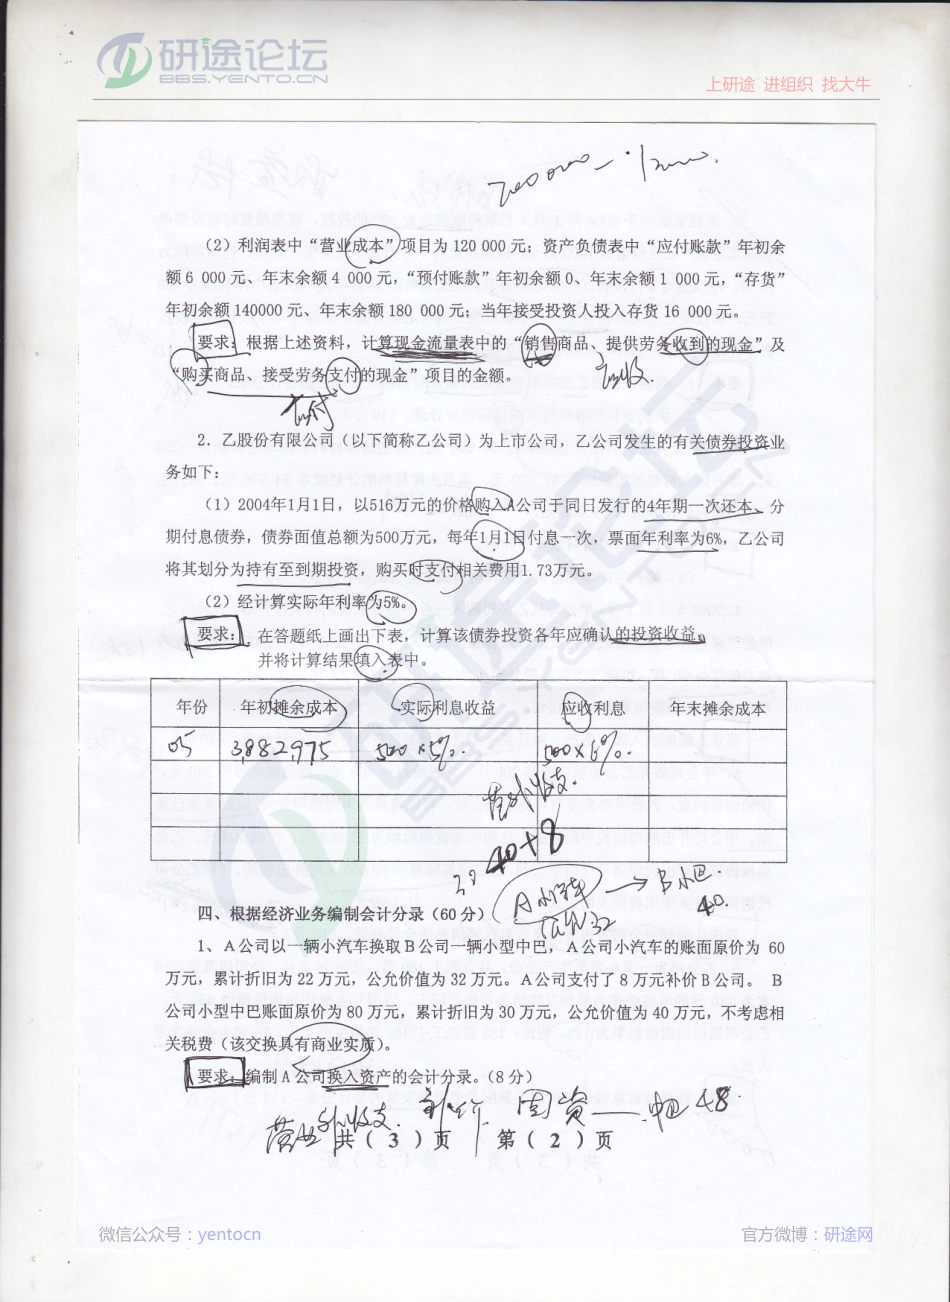 研途论坛
BBS.YENTO.CN
上研途 进组织 找大牛
(2)利润表中“营业成本”项目为120 000元;资产负债表中“应付账款”年初余
额6 000元、年末余额4 000元,“预付账款”年初余额0、年末余额1 000元,“存货”
年初余额140000元、年末余额180 000元;当年接受投资人投入存货16 000元。
要求:根据上述资料,计算现金流量表中的“销售商品、提供劳务收到的现金”及
“购买商品、接受劳务支付的现金”项目的金额。
应收
应付
2.乙股份有限公司(以下简称乙公司)为上市公司,乙公司发生的有关债券投资业
务如下:
(1)2004年1月1日,以516万元的价格购入A公司于同日发行的4年期一次还本、分
期付息债券,债券面值总额为500万元,每年1月1日付息一次,票面年利率为6%,乙公司
将其划分为持有至到期投资,购买时支付相关费用1.73万元。
(2)经计算实际年利率为5%。
要求: 在答题纸上画出下表,计算该债券投资各年应确认的投资收益。
并将计算结果填入表中。
年份 年初摊余成本 实际利息收益 应收利息 年末摊余成本
05 3,882,975 500×5%. 500×6%.
营业外收支.
40+8
A小汽车 → B小巴.
公允32 40.
四、根据经济业务编制会计分录(60分)
1、A公司以一辆小汽车换取B公司一辆小型中巴,A公司小汽车的账面原价为 60
万元,累计折旧为22万元,公允价值为32万元。A公司支付了8万元补价B公司。 B
公司小型中巴账面原价为80万元,累计折旧为30万元,公允价值为40万元,不考虑相
关税费(该交换具有商业实质)。
要求:编制A公司换入资产的会计分录。(8分)
营业外收支. 固资——中巴 48
共(3)页 第(2)页
微信公众号:yentocn 官方微博:研途网